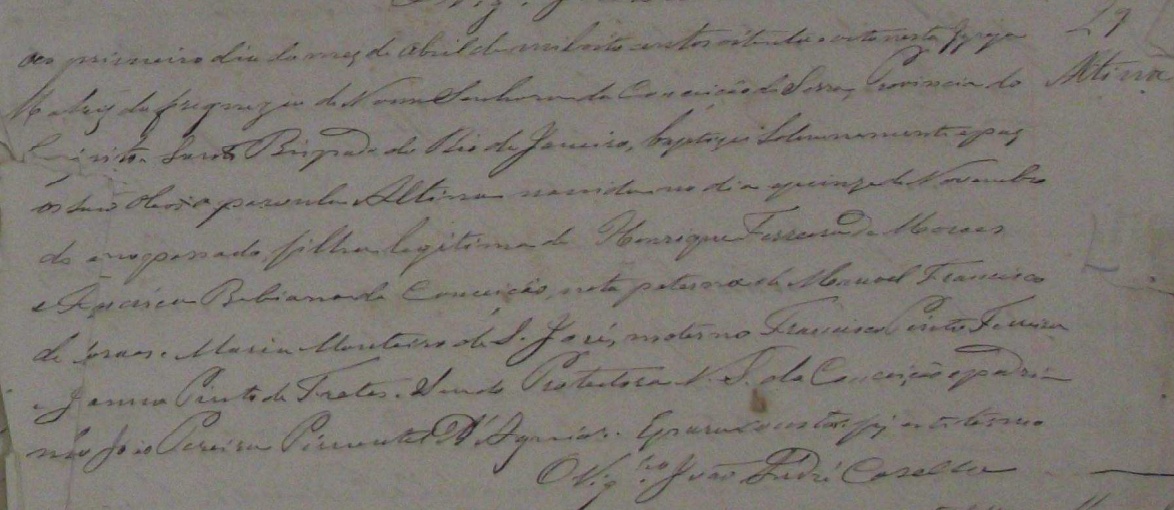 Vig.
29
Ao primeiro dia do mez de Abril de mil oito centos oitenta e oito nesta Igreja
Altina
Matriz da freguezia de Nossa Senhora da Conceição da Serra, Provincia do
Espirito Santo Bispado do Rio de Janeiro, baptizei Solemnemente e puz
os Santos Oleos a parvula Altina nascida no dia quinze de Novembro
do anno passado, filha legitima de Henrique Ferreira de Moraes
e Francisca Bibiana da Conceição, neta paterna de Manoel Francisco
de Moraes e Maria Monteiro de S. José, materno Francisco Pinto Ferreira
e Joanna Pinto de Freitas. Sendo Protectora N. S. da Conceição e padri-
nho João Pereira Pimentel D'Aguiar. E para constar fiz este termo
O Vig.ro João